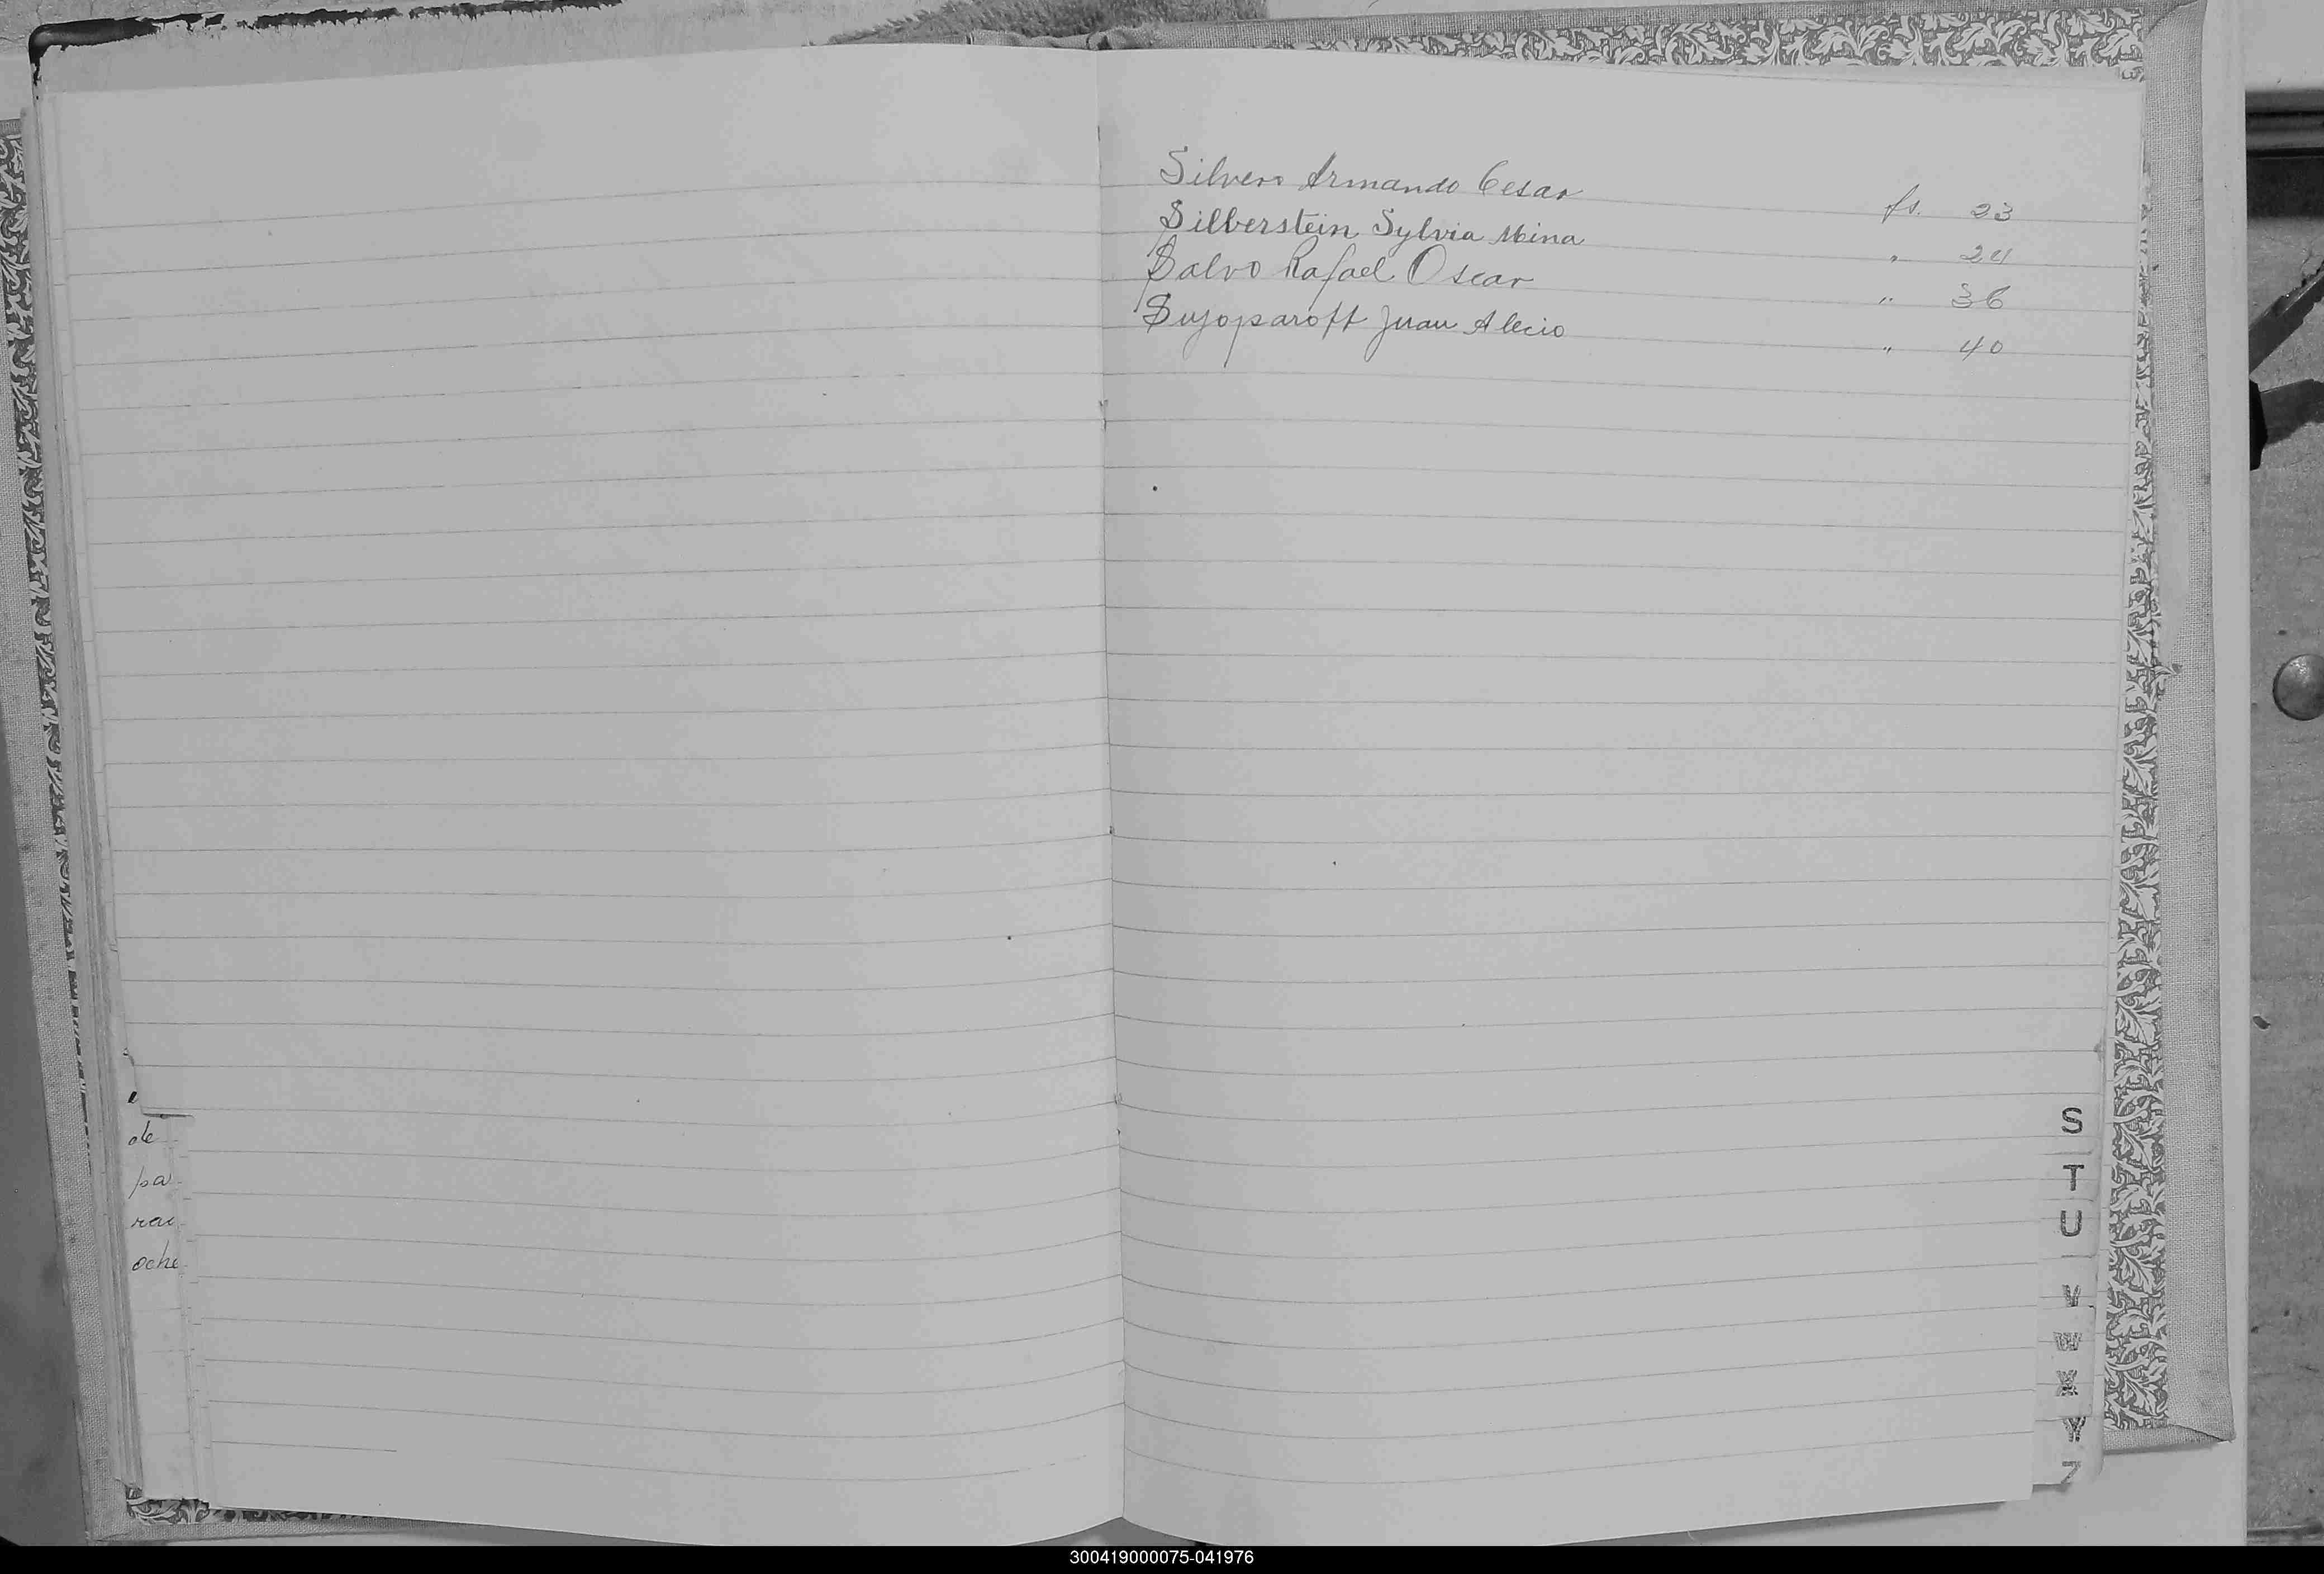 Silvero Armando Cesar fs. 23
Silberstein Sylvia Mina " 24
Salvo Rafael Oscar " 36
Sujoparoff Juan Alecio " 40
de
pa
rai
oche
S
T
U
V
W
X
Y
Z
300419000075-041976